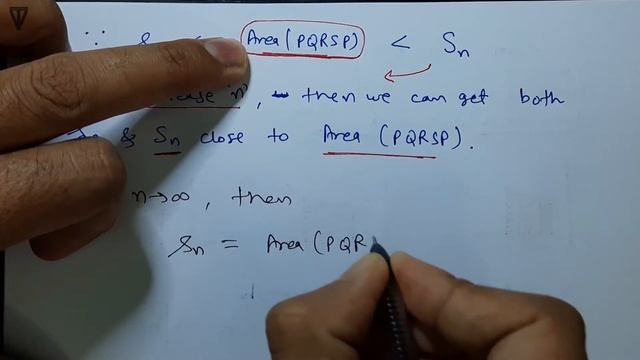 ∵ < Area (PQRSP) < Sn
'n', then we can get both
& Sn close to Area (PQRSP).
n→∞, then
sn = Area (PQR